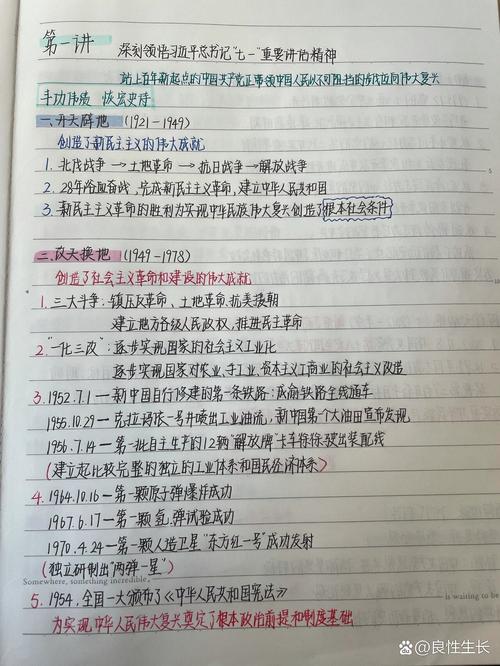 第一讲 深刻领悟习近平总书记"七一"重要讲话精神
站上百年新起点的中国共产党正带领中国人民以不可阻挡的步伐迈向伟大复兴
丰功伟绩 恢宏史诗
一、开天辟地 (1921-1949)
创造了新民主主义的伟大成就
1. 北伐战争 → 土地革命 → 抗日战争 → 解放战争
2. 28年浴血奋战,完成新民主主义革命,建立中华人民共和国
3. 新民主主义革命的胜利为实现中华民族伟大复兴创造了根本社会条件
二、改天换地 (1949-1978)
创造了社会主义革命和建设的伟大成就
1. 三大斗争:镇压反革命、土地革命、抗美援朝
建立地方各级人民政权,推进民主革命
2. "一化三改":逐步实现国家的社会主义工业化
逐步实现国家对农业、手工业、资本主义工商业的社会主义改造
3. 1952.7.1—新中国自行修建的第一条铁路:成渝铁路全线通车
1955.10.29—克拉玛依一号井喷出工业油流,新中国第一个大油田宣布发现
1956.7.14—第一批自主生产的12辆"解放牌"卡车徐徐驶出装配线
(建立起比较完整的独立的工业体系和国民经济体系)
4. 1964.10.16—第一颗原子弹爆炸成功
1967.6.17—第一颗氢弹试验成功
1970.4.24—第一颗人造卫星"东方红一号"成功发射
(独立研制出"两弹一星")
Somewhere, something incredible
is waiting to be
5. 1954,全国一大颁布了《中华人民共和国宪法》
为实现中华人民伟大复兴奠定了根本政治前提和制度基础
@良性生长